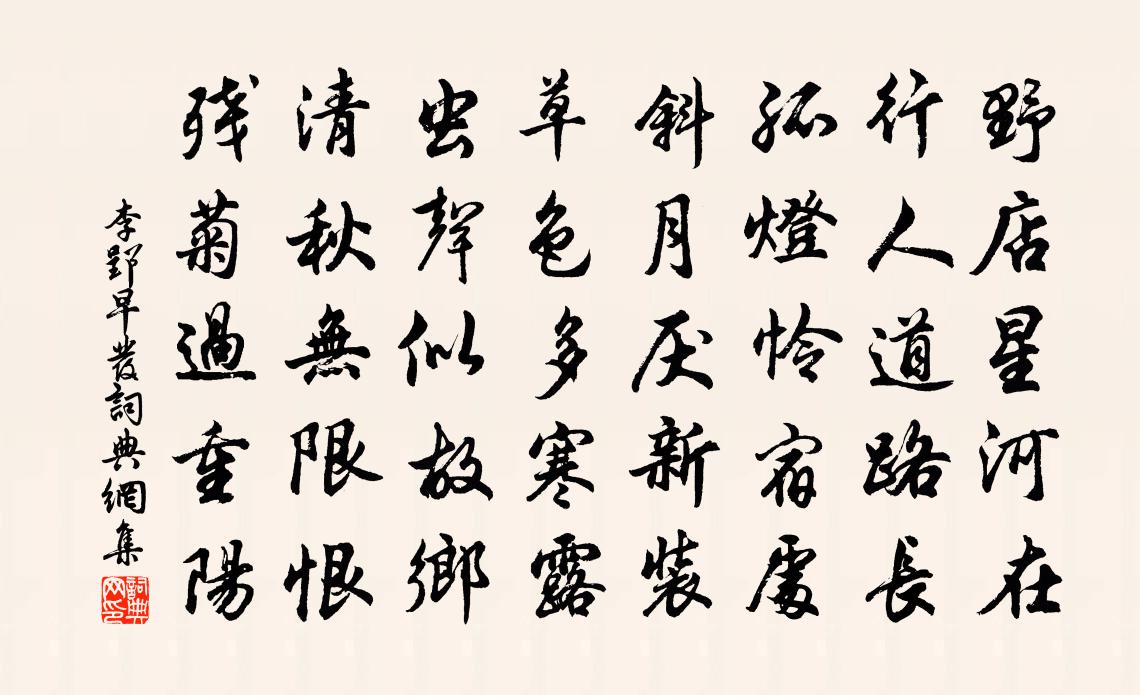 野店星河在
行人道路長
孤燈怜宿處
斜月厌新装
草色多寒露
虫聲似故鄉
清秋無限恨
残菊過重陽
李郢早發詞典網集
詞典网印